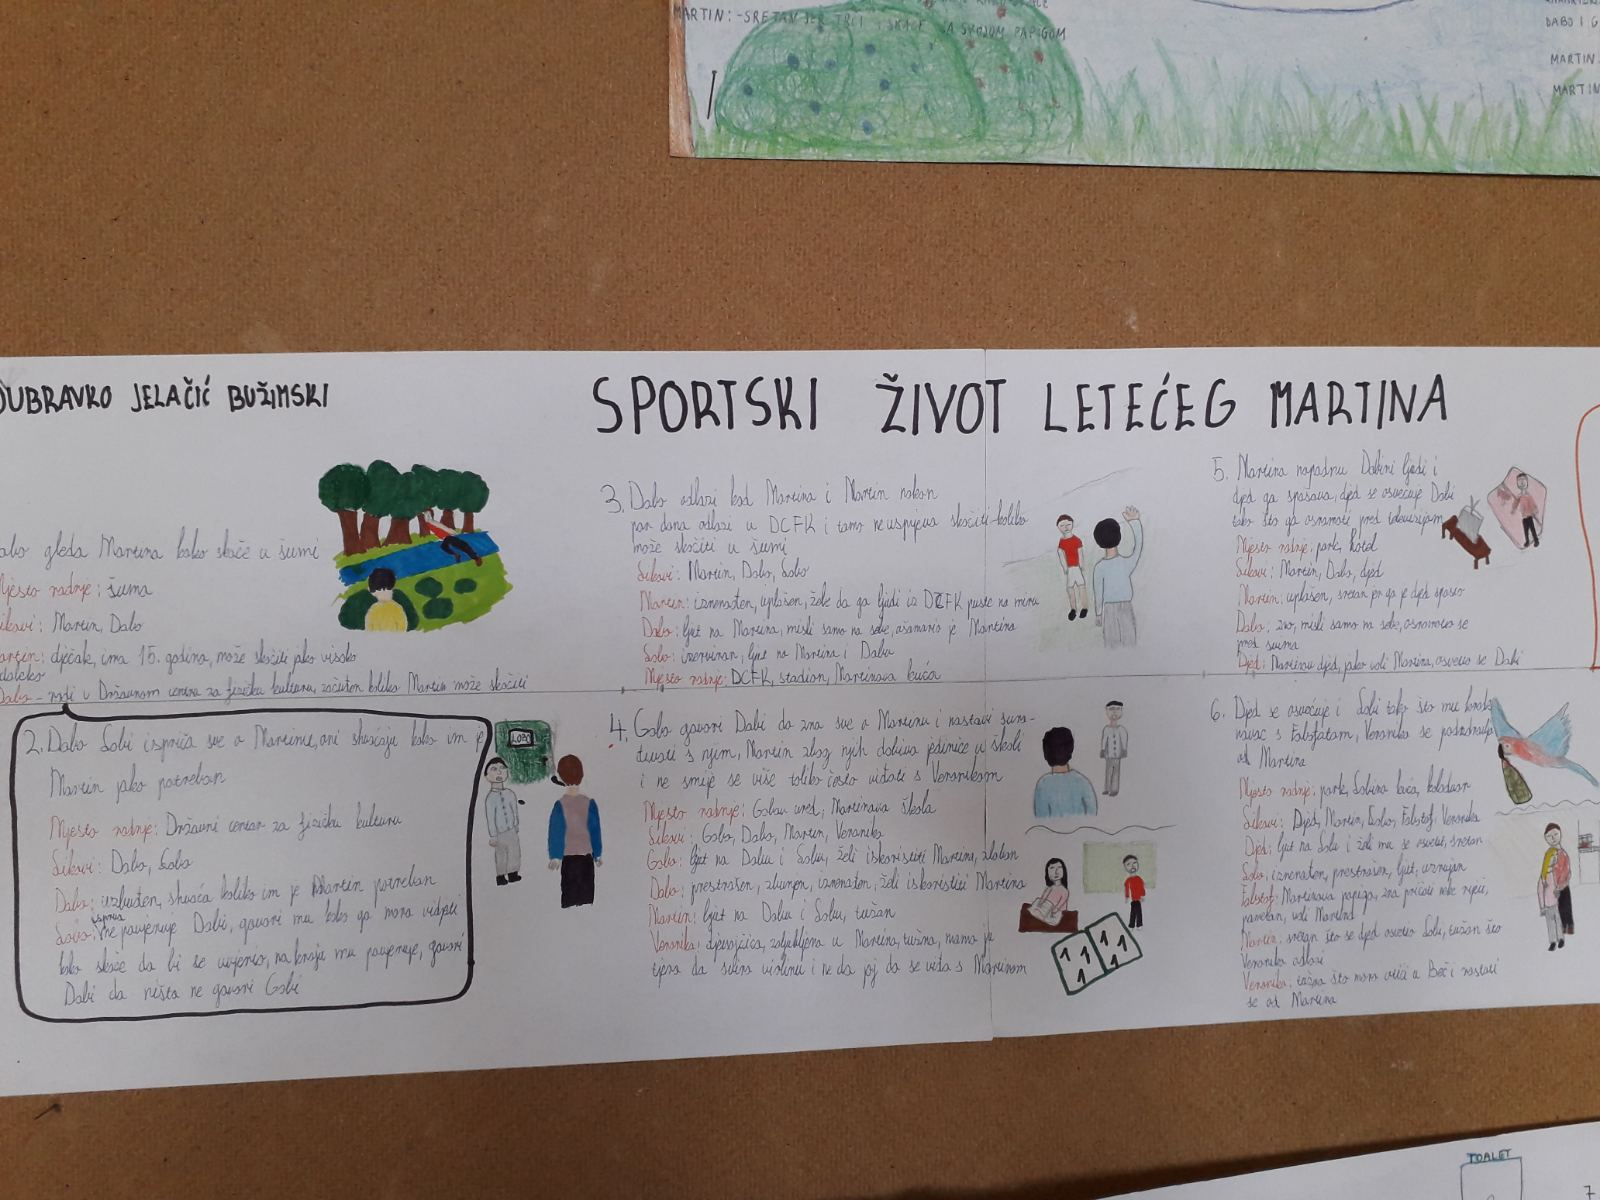 MARTIN: -SRETAN JER TRČI I SKAČE SA SVOJOM PAPIGOM
DABO I G
MARTIN:
MARTIN
DUBRAVKO JELAČIĆ BUŽIMSKI
SPORTSKI ŽIVOT LETEĆEG MARTINA
abo gleda Martina kako skače u šumi
Mjesto radnje: šuma
Likovi: Martin, Dabo
Martin: dječak, ima 15. godina, može skočiti jako visoko
daleko
Dabo - radi u Državnom centru za fizičku kulturu, začuđen koliko Martin može skočiti
2. Dabo Sobi ispriča sve o Martinu, oni shvaćaju kako im je
Martin jako potreban
Mjesto radnje: Državni centar za fizičku kulturu
Likovi: Dabo, Sobo
Dabo: uzbuđen, shvaća koliko im je Martin potreban
Sobo: isprva ne povjeruje Dabi, govori mu kako ga mora vidjeti
kako skače da bi se uvjerio, na kraju mu povjeruje, govori
Dabi da ništa ne govori Gobi
3. Dabo odlazi kod Martina i Martin nakon
par dana odlazi u DCFK i tamo ne uspijeva skočiti koliko
može skočiti u šumi
Likovi: Martin, Dabo, Sobo
Martin: iznenađen, uplašen, žele da ga ljudi iz DCFK puste na miru
Dabo: ljut na Martina, misli samo na sebe, osamario je Martina
Sobo: iznerviran, ljut na Martina i Dabu
Mjesto radnje: DCFK, stadion, Martinova kuća
4. Gobo govori Dabi da zna sve o Martinu i nastavi sura-
đivati s njim, Martin zbog njih dobiva jedinice u školi
i ne smije se više toliko često viđati s Veronikom
Mjesto radnje: Gobin ured, Martinova škola
Likovi: Gobo, Dabo, Martin, Veronika
Gobo: ljut na Dabu i Sobu, želi iskoristiti Martina, zloban
Dabo: prestrašen, zbunjen, iznenađen, želi iskoristiti Martina
Martin: ljut na Dabu i Sobu, tužan
Veronika: djevojčica, zaljubljena u Martina, tužna, mama je
tjera da svira violinu i ne da joj da se viđa s Martinom
1 1
1 1
5. Martina napadnu Dabini ljudi i
djed ga spašava, djed se osvećuje Dabi
tako što ga osramoti pred televizijom
Mjesto radnje: park, hotel
Likovi: Martin, Dabo, djed
Martin: uplašen, sretan jer ga je djed spasio
Dabo: zao, misli samo na sebe, osramotio se
pred svima
Djed: Martinov djed, jako voli Martina, osvetio se Dabi
6. Djed se osvećuje i Sobi tako što mu
s Falstafom, Veronika se
od Martina
Mjesto radnje: park, Sobina kuća, kolodvor
Likovi: Djed, Martin, Sobo, Falstaf, Veronika
Djed: ljut na Sobu i želi mu se osvetiti, sretan
Sobo: iznenađen, prestrašen, ljut, uznujan
Falstaf: Martinova papiga, zna pričati neke riječi,
pametan, voli Martina
Martin: sretan što se djed osvetio Sobi, tužan što
Veronika odlazi
Veronika: tužna što mora otići u Beč i rastati
se od Martina
TOALET
7